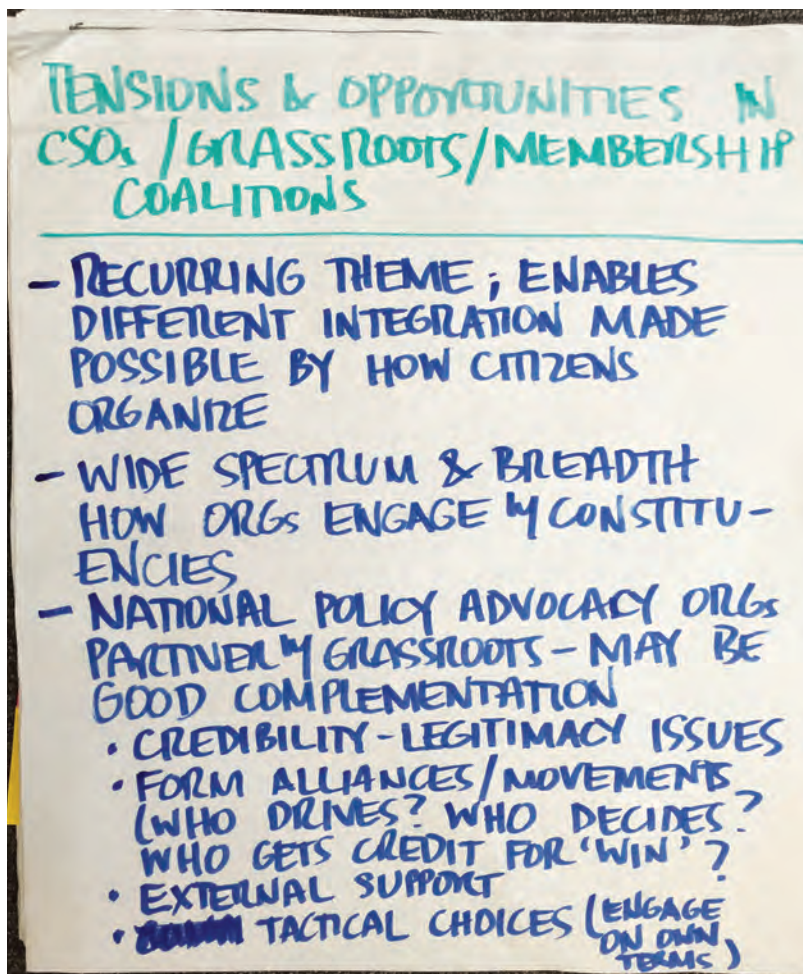 TENSIONS & OPPORTUNITIES IN
CSOs/GRASSROOTS/MEMBERSHIP
COALITIONS
- RECURRING THEME; ENABLES
DIFFERENT INTEGRATION MADE
POSSIBLE BY HOW CITIZENS
ORGANIZE
- WIDE SPECTRUM & BREADTH
HOW ORGs ENGAGE w/ CONSTITU-
ENCIES
- NATIONAL POLICY ADVOCACY ORGs
PARTNER w/ GRASSROOTS - MAY BE
GOOD COMPLEMENTATION
• CREDIBILITY-LEGITIMACY ISSUES
• FORM ALLIANCES/MOVEMENTS
(WHO DRIVES? WHO DECIDES?
WHO GETS CREDIT FOR 'WIN'?
• EXTERNAL SUPPORT
• TACTICAL CHOICES (ENGAGE
ON OWN
TERMS)